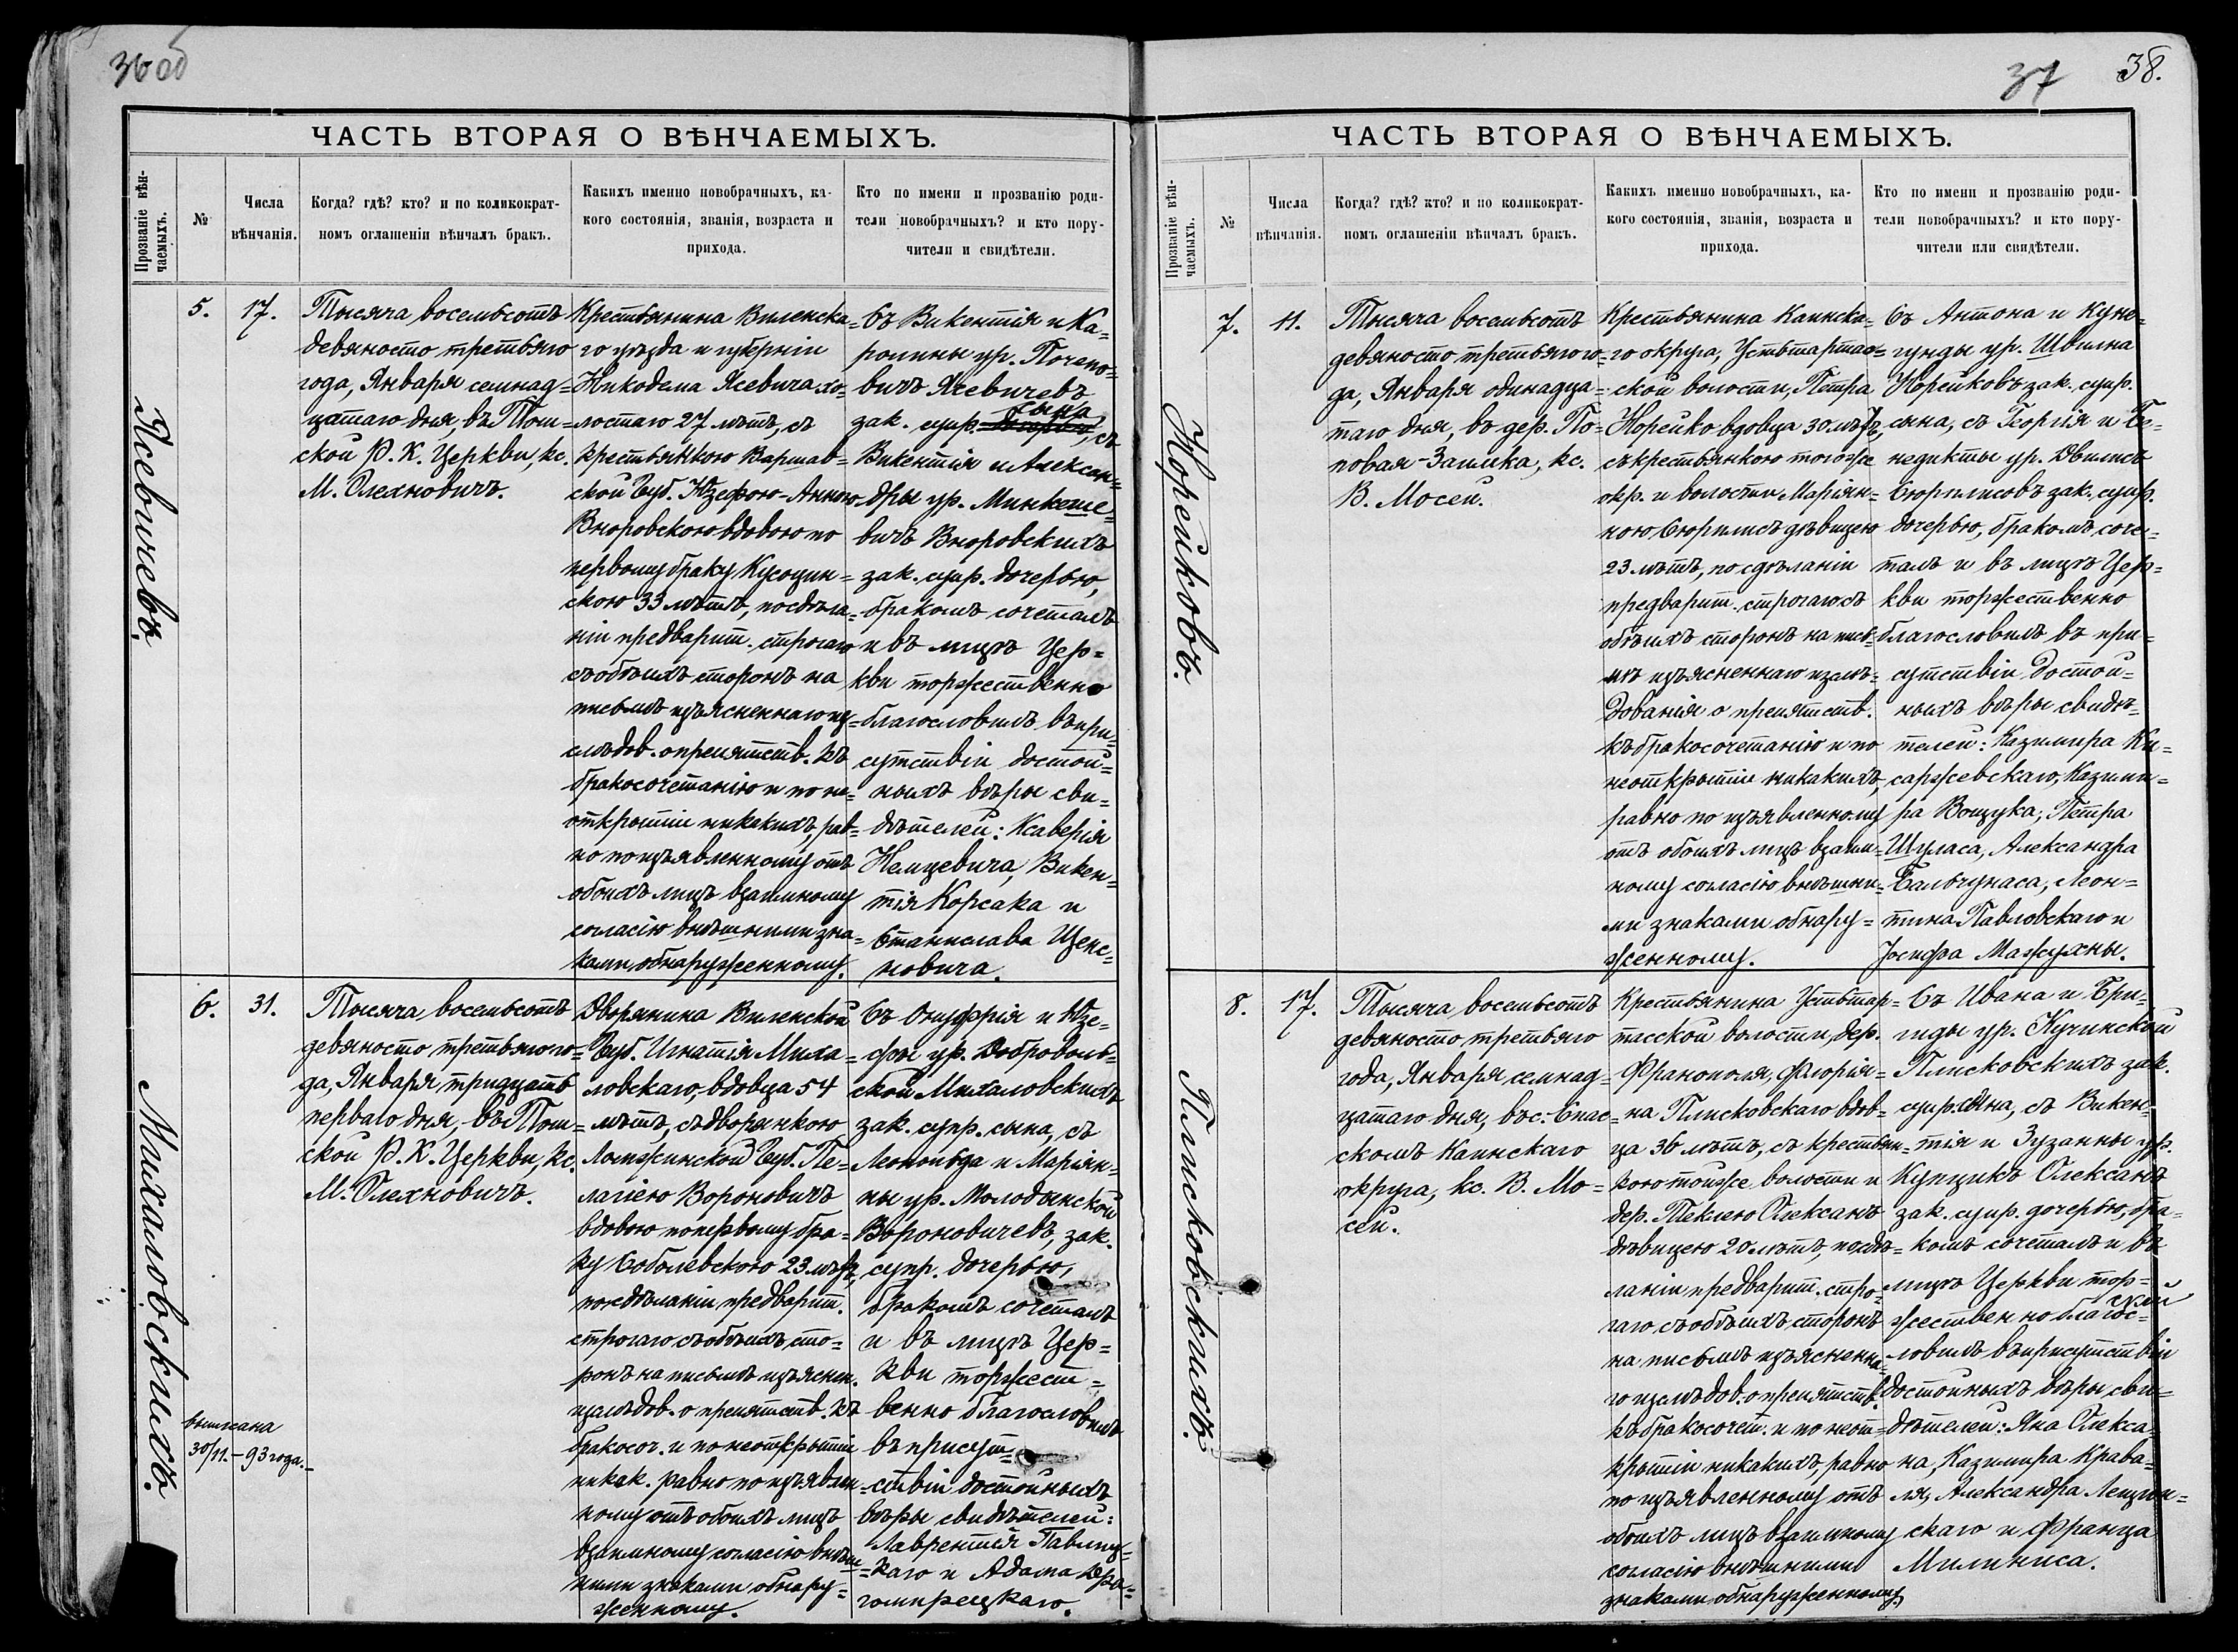 36 об
ЧАСТЬ ВТОРАЯ О ВѢНЧАЕМЫХЪ.
Прозваніе вѣн-
чаемыхъ.
№
Числа
вѣнчанія.
Когда? гдѣ? кто? и по коликократ-
номъ оглашеніи вѣнчалъ бракъ.
Какихъ именно новобрачныхъ, ка-
кого состоянія, званія, возраста и
прихода.
Кто по имени и прозванію роди-
тели новобрачныхъ? и кто пору-
чители и свидѣтели.
Ясевичевъ.
5.
17.
Тысяча восемьсотъ
девяносто третьяго
года, Января семнад=
цатаго дня, въ Том=
ской Р. К. Церкви, кс.
М. Олехновичъ.
Крестьянина Виленска=
го уѣзда и губерніи
Никодема Ясевича хо=
лостаго 27 лѣтъ, съ
крестьянкою Варшав=
ской Губ. Юзефою-Анною
Вноровскою вдовою по
первому браку Кусоцин=
скою 33 лѣтъ, по сдѣла=
ніи предварит. строгаго
съ обѣихъ сторонъ на
письмѣ изъясненнаго из=
слѣдов. о препятств. къ
бракосочетанію и по не=
открытіи никакихъ, рав=
но по изъявленному отъ
обоихъ лицъ взаимному
согласію внѣшними зна=
ками обнаруженному.
Съ Викентія и Ка=
ролины ур. Почепо=
вичъ Ясевичевъ
зак. супр. сына, съ
Викентія и Алексан=
дры ур. Минкеше=
вичъ Вноровскихъ
зак. супр. дочерью,
бракомъ сочеталъ
и въ лицѣ Цер=
кви торжественно
благословилъ въ при=
сутствіи достой=
ныхъ вѣры сви=
дѣтелей: Ксаверія
Немцевича, Викен=
тія Корсака и
Станислава Щенс=
новича.
Михаловскихъ.
6.
31.
выписана
30/11.-93 года.
Тысяча восемьсотъ
девяносто третьяго го=
да, Января тридцать
перваго дня, въ Том=
ской Р. К. Церкви, кс.
М. Олехновичъ.
Дворянина Виленской
Губ. Игнатія Миха=
ловскаго, вдовца 54
лѣтъ, съ дворянкою
Ломжинской Губ. Пе=
лагіею Вороновичъ
вдовою по первому бра=
ку Соболевскою 23 лѣтъ,
по сдѣланіи предварит.
строгаго съ обѣихъ сто=
ронъ на письмѣ изъяснен.
изслѣдов. о препятств. къ
бракосоч. и по неоткрытіи
никак. равно по изъявлен=
ному отъ обоихъ лицъ
взаимному согласію внѣш=
ними знаками обнару=
женному.
Съ Онуфрія и Юзе=
фы ур. Доброволь=
ской Михаловскихъ
зак. супр. сына, съ
Леопольда и Маріян=
ны ур. Молодынской
Вороновичевъ, зак.
супр. дочерью,
бракомъ сочеталъ
и въ лицѣ Цер=
кви торжест=
венно благословилъ
въ присут=
ствіи достойныхъ
вѣры свидѣтелей:
Лаврентія Павлиц=
каго и Адама Дра=
гомирецкаго.
37
38.
ЧАСТЬ ВТОРАЯ О ВѢНЧАЕМЫХЪ.
Прозваніе вѣн-
чаемыхъ.
№
Числа
вѣнчанія.
Когда? гдѣ? кто? и по коликократ-
номъ оглашеніи вѣнчалъ бракъ.
Какихъ именно новобрачныхъ, ка-
кого состоянія, званія, возраста и
прихода.
Кто по имени и прозванію роди-
тели новобрачныхъ? и кто пору-
чители или свидѣтели.
Норейковъ.
7.
11.
Тысяча восемьсотъ
девяносто третьяго го=
да, Января одинадца=
таго дня, въ дер. По=
повая-Заимка, кс.
В. Мосей.
Крестьянина Каинска=
го округа, Устьтартас=
ской волости, Петра
Норейко вдовца 30 лѣтъ,
съ крестьянкою того же
окр. и волости Маріян=
ною Сюрплисъ дѣвицею
23 лѣтъ, по сдѣланіи
предварит. строгаго съ
обѣихъ сторонъ на пись=
мѣ изъясненнаго изслѣ=
дованія о препятств.
къ бракосочетанію и по
неоткрытіи никакихъ,
равно по изъявленному
отъ обоихъ лицъ взаим=
ному согласію внѣшни=
ми знаками обнару=
женному.
Съ Антона и Куне=
гунды ур. Швилна
Норейковъ зак. супр.
сына, съ Георгія и Бе=
недикты ур. Двилисъ
Сюрплисовъ зак. супр.
дочерью, бракомъ соче=
талъ и въ лицѣ Цер=
кви торжественно
благословилъ въ при=
сутствіи достой=
ныхъ вѣры свидѣ=
телей: Казимира Ки=
саржевскаго, Казими=
ра Вощука, Петра
Шуласа, Александра
Бальчунаса, Леон=
тина Павловскаго и
Іосифа Мажухны.
Плисковскихъ.
8.
17.
Тысяча восемьсотъ
девяносто третьяго
года, Января семнад=
цатаго дня, въ с. Спас=
скомъ Каинскаго
округа, кс. В. Мо=
сей.
Крестьянина Устьтар=
тасской волости, дер.
Франополя, Флорія=
на Плисковскаго вдов=
ца 36 лѣтъ, съ крестьян=
кою той же волости и
дер. Теклею Олексанъ
дѣвицею 20 лѣтъ, по сдѣ=
ланіи предварит. стро=
гаго съ обѣихъ сторонъ
на письмѣ изъясненна=
го изслѣдов. о препятств.
къ бракосочет. и по неот=
крытіи никакихъ, равно
по изъявленному отъ
обоихъ лицъ взаимному
согласію внѣшними
знаками обнаруженному.
Съ Ивана и Бри=
гиды ур. Кучинской
Плисковскихъ зак.
супр. сына, съ Викен=
тія и Зузанны ур.
Купцикъ Олексанъ
зак. супр. дочерью, бра=
комъ сочеталъ и въ
лицѣ Церкви тор=
жественно благос=
ловилъ въ присутствіи
достойныхъ вѣры сви=
дѣтелей: Яна Олекса=
на, Казимира Крава=
ля, Александра Лещин=
скаго и Франца
Милиниса.